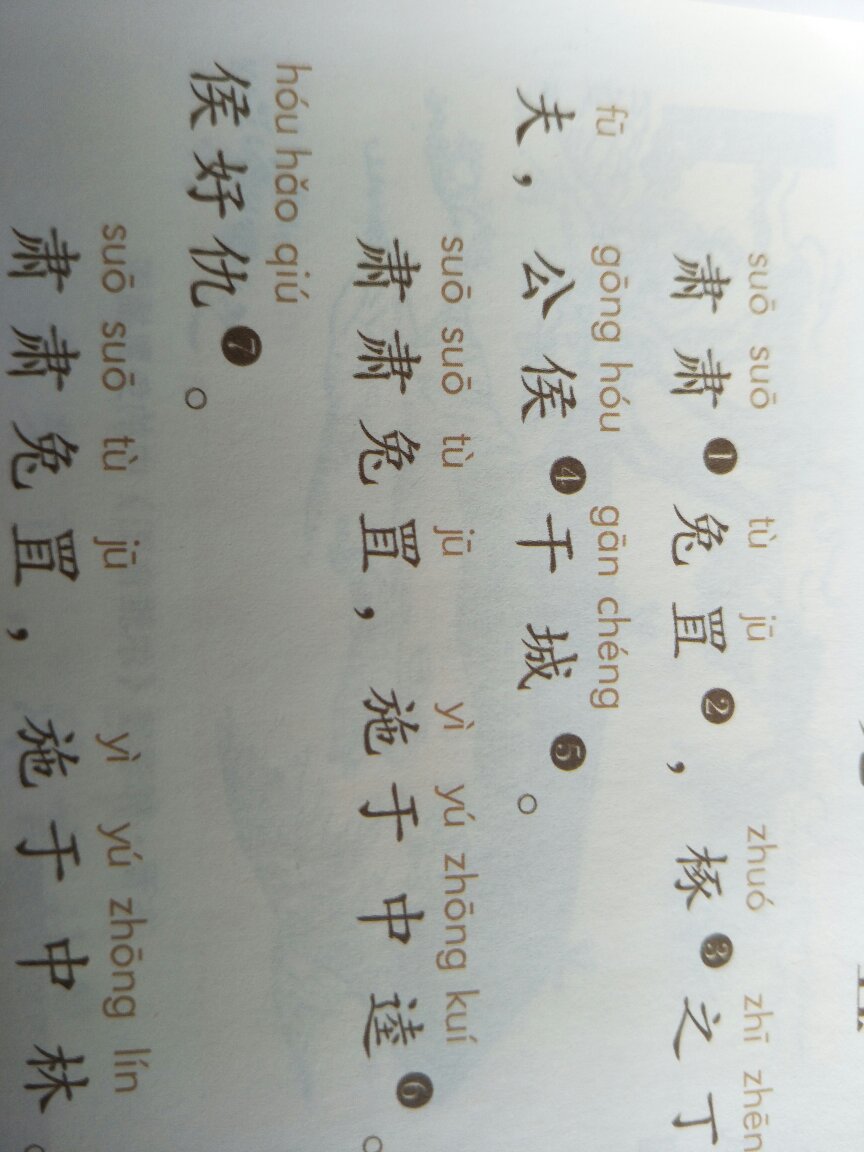 suō suō tù jū zhuó zhī zhēn
肃肃❶兔罝❷，椓❸之丁
fū gōng hóu gān chéng
夫，公侯❹干城❺。
suō suō tù jū yì yú zhōng kuí
肃肃兔罝，施于中逵❻。
hóu hǎo qiú
侯好仇❼。
suō suō tù jū yì yú zhōng lín
肃肃兔罝，施于中林。